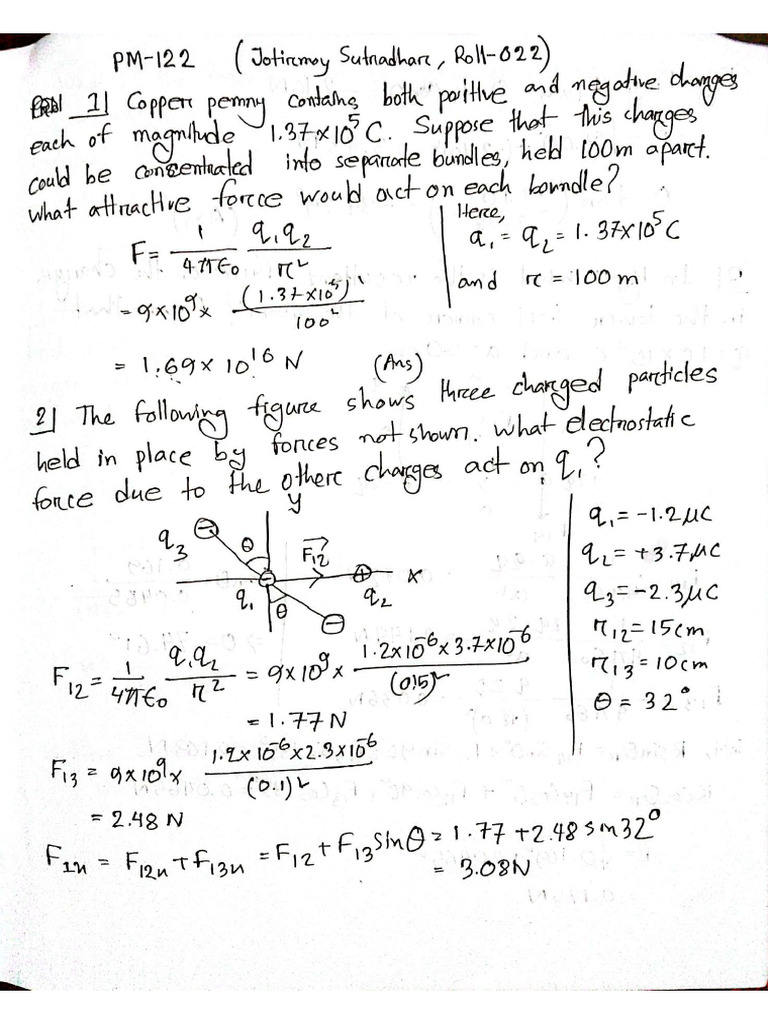 PM-122 (Jotiremoy Sutradhare, Roll-022)
1] Copper penny contains both positive and negative charges
each of magnitude 1.37×10⁵ C. Suppose that this charges
could be concentrated into separate bundles, held 100m apart.
what attractive force would act on each bowndle?
F = 1/4πϵ₀ q₁q₂/r²
Here,
q₁ = q₂ = 1.37×10⁵ C
and r = 100 m
= 9×10⁹ × (1.37×10⁵)/100²
= 1.69 × 10¹⁶ N (Ans)
2] The following figure shows three charged particles
held in place by forces not shown. what electrostatic
force due to the othere charges act on q₁?
y
q₃ θ F₁₂ x
q₁ θ q₂
q₁ = -1.2 μC
q₂ = +3.7 μC
q₃ = -2.3 μC
r₁₂ = 15 cm
r₁₃ = 10 cm
θ = 32°
F₁₂ = 1/4πϵ₀ q₁q₂/r² = 9×10⁹ × 1.2×10⁻⁶ × 3.7×10⁻⁶/(0.15)²
= 1.77 N
F₁₃ = 9×10⁹ × 1.2×10⁻⁶ × 2.3×10⁻⁶/(0.1)²
= 2.48 N
F₁ₓ = F₁₂ₓ + F₁₃ₓ = F₁₂ + F₁₃ sinθ = 1.77 + 2.48 sin32°
= 3.08N